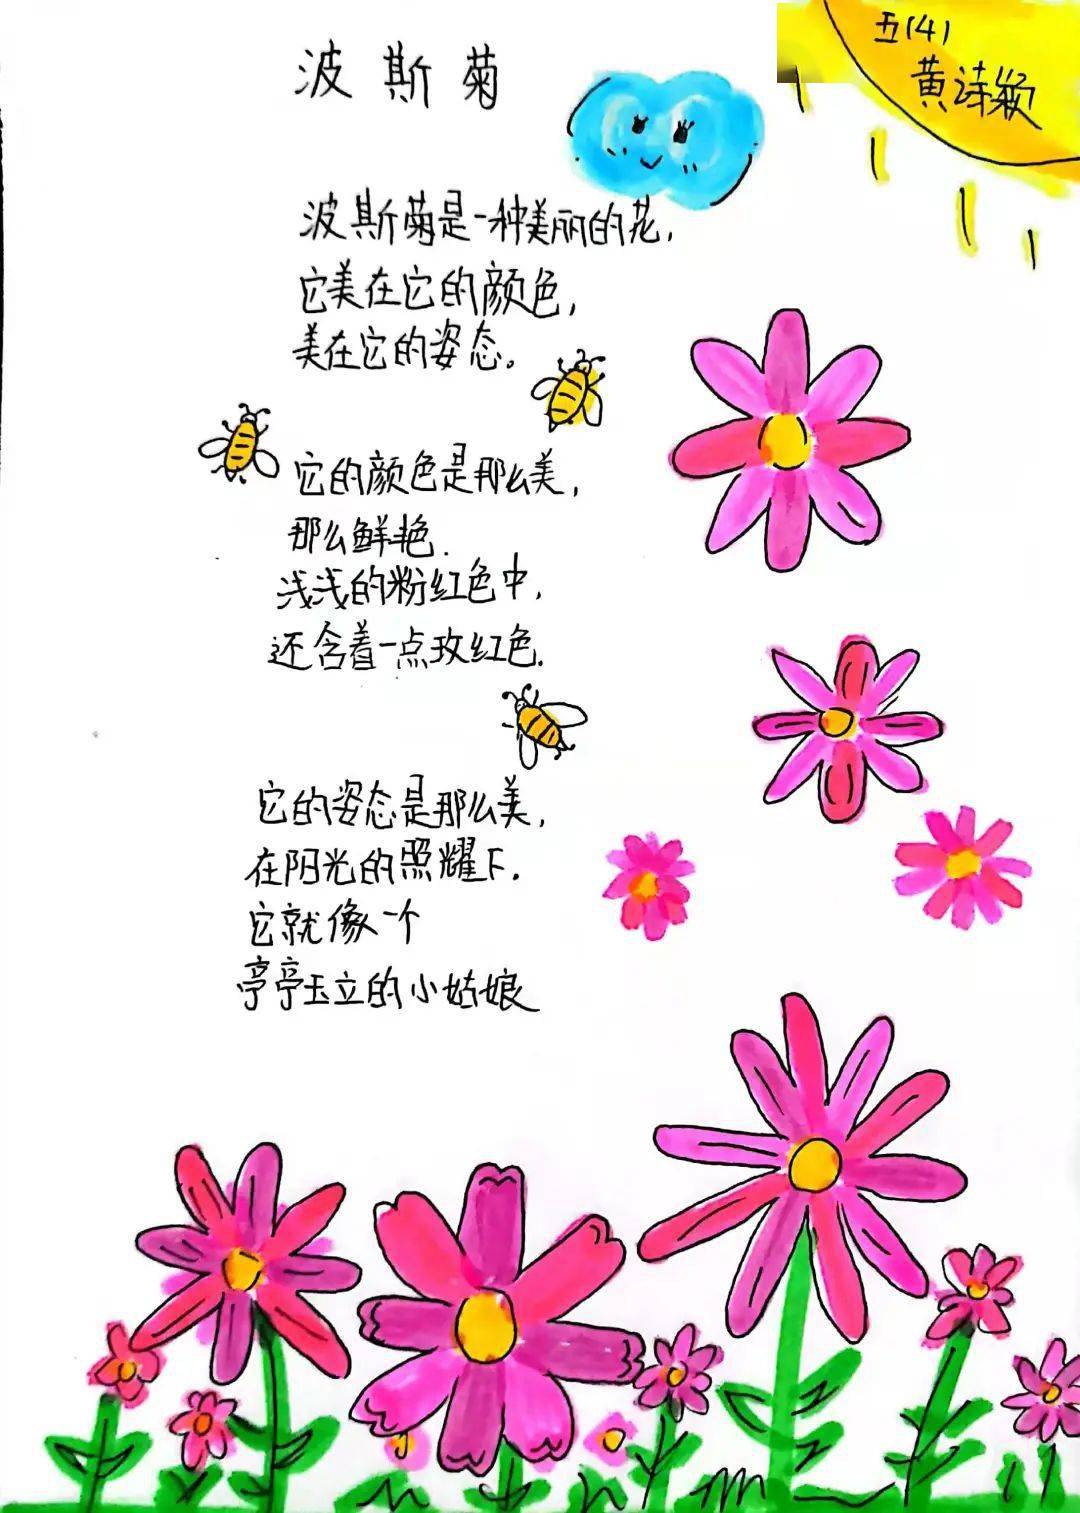 波斯菊
五(4)
黄诗颖
波斯菊是一种美丽的花,
它美在它的颜色,
美在它的姿态。
它的颜色是那么美,
那么鲜艳.
浅浅的粉红色中,
还含着一点玫红色.
它的姿态是那么美,
在阳光的照耀下.
它就像一个
亭亭玉立的小姑娘